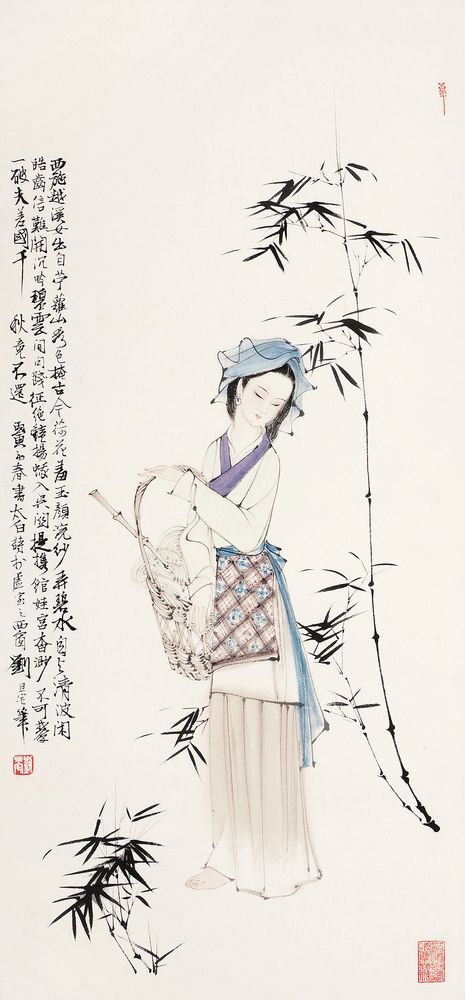 西施越溪女出自苧蘿山秀色掩古今荷花羞玉顏浣紗弄碧水自与清波闲
皓齒信難開沉吟碧雲间勾踐征絕艷揚蛾入吳関提攜館娃宮杳渺不可攀
一破夫差國千秋竟不還 寅春書太白詩於之西窗劉旦宅筆